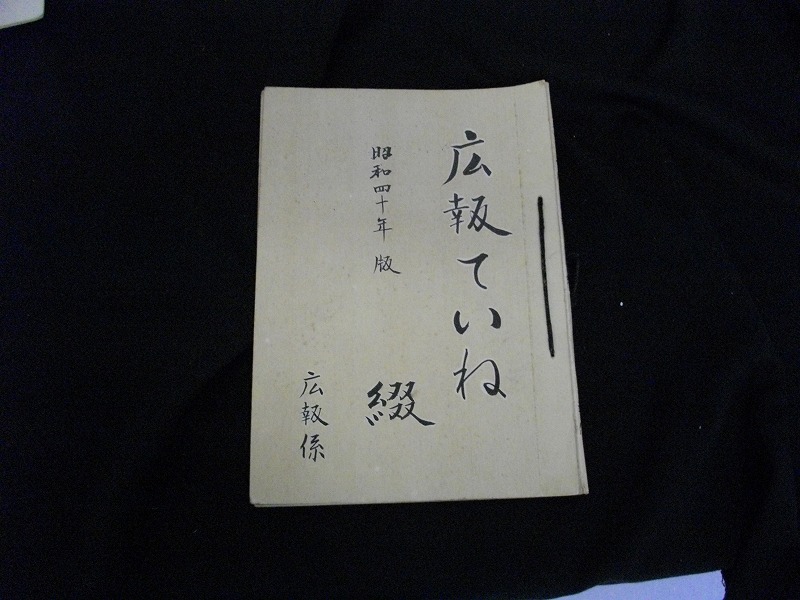 広報ていね
昭和四十年版
綴
広報係